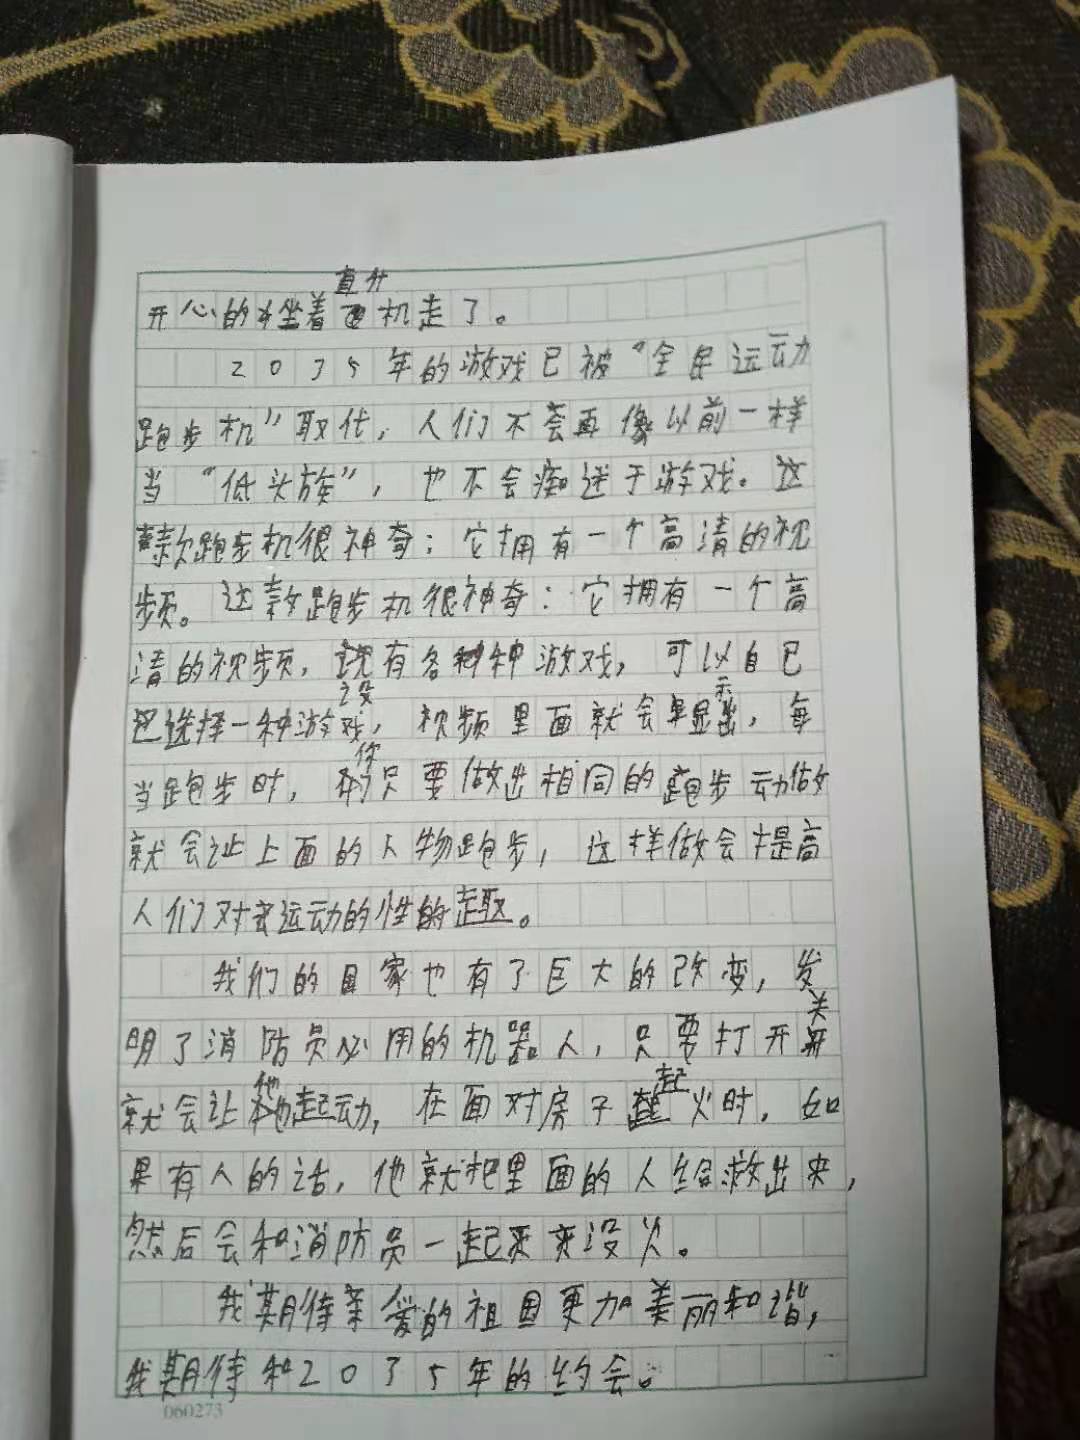 直升
开心的坐着机走了。
2035年的游戏已被“全民运动
跑步机”取代，人们不会再像以前一样
当“低头族”，也不会痴迷于游戏。这
款跑步机很神奇：它拥有一个高清的视
频。这款跑步机很神奇：它拥有一个高
清的视频，有各种种游戏，可以自己
选择一种游戏，视频里面就会显示，每
你
当跑步时，只要做出相同的跑步动做
就会让上面的人物跑步，这样做会提高
人们对运动的性的趣。
我们的国家也有了巨大的改变，发
关
明了消防员必用的机器人，只要打开
他 起
就会让起动，在面对房子火时，如
果有人的话，他就把里面的人给救出来，
然后会和消防员一起来灭火。
我期待亲爱的祖国更加美丽和谐，
我期待和2035年的约会。
060273